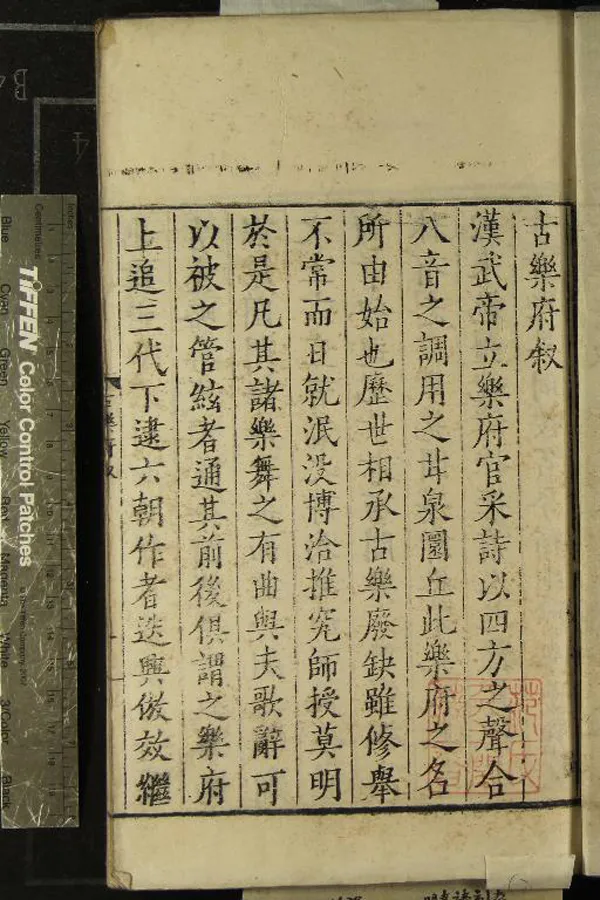 古樂府叙
漢武帝立樂府官采詩以四方之聲合
八音之調用之甘泉圜丘此樂府之名
所由始也歷世相承古樂廢缺雖修舉
不常而日就泯没博洽推究師授莫明
於是凡其諸樂舞之有曲與夫歌辭可
以被之管絃者通其前後俱謂之樂府
上追三代下逮六朝作者迭興倣效繼
古樂府叙
TIFFEN Color Control Patches
Blue
Cyan
Green
Yellow
Red
Magenta
White
3/Color
Black
Centimetres
Inches